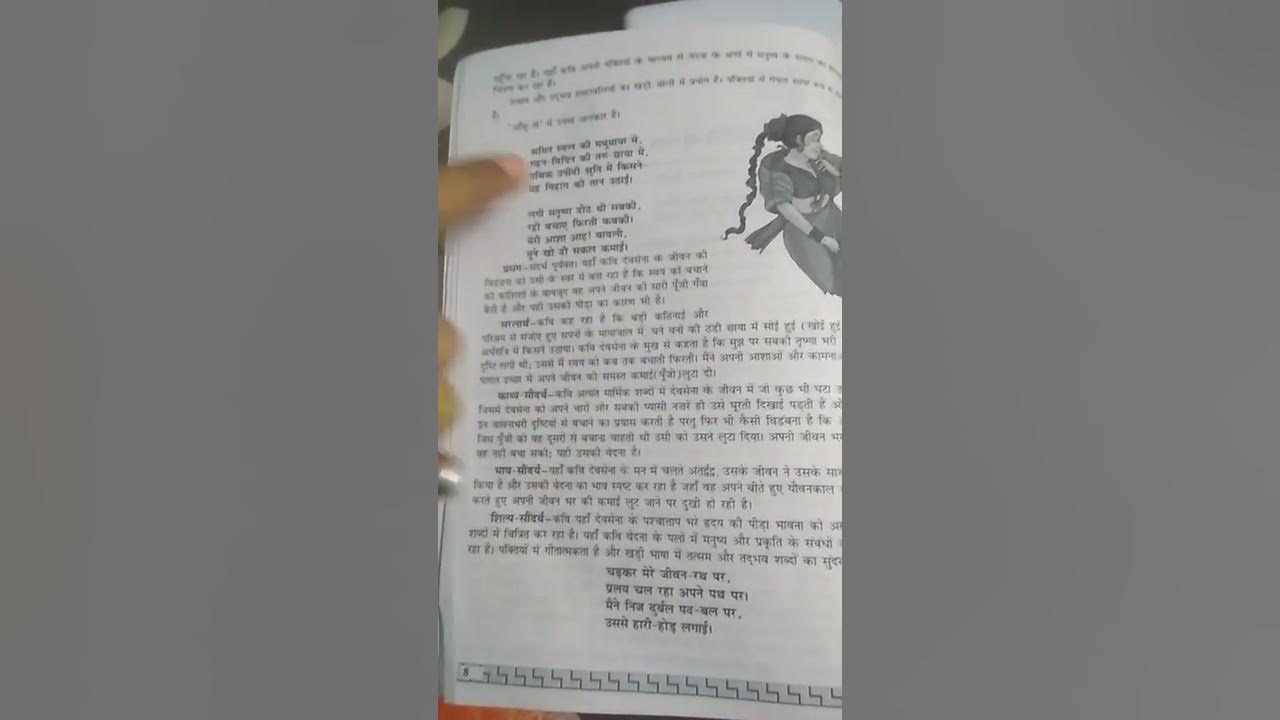 पहुँचा रहा है। यहाँ कवि अपनी पंक्तियों के माध्यम से वेदना के क्षणों में मनुष्य के
चित्रण कर रहा है।
तत्सम और तद्भव शब्दावलियों का खड़ी बोली में प्रयोग है। पंक्तियों में
है।
'आँसू-से' में उपमा अलंकार है।
श्रमित स्वप्न की मधुमाया में,
गहन-विपिन की तरु-छाया में,
पथिक उनींदी श्रुति में किसने-
यह विहाग की तान उठाई।
लगी सतृष्ण दीठ थी सबकी,
रही बचाए फिरती कबकी।
मेरी आशा आह! बावली,
तूने खो दी सकल कमाई।
प्रसंग—संदर्भ पूर्ववत्। यहाँ कवि देवसेना के जीवन की
विडंबना को उसी के स्वर में बता रहा है कि स्वयं को बचाने
की कोशिशों के बावजूद वह अपने जीवन की सारी पूँजी गँवा
बैठी है और यही उसकी पीड़ा का कारण भी है।
सरलार्थ—कवि कह रहा है कि बड़ी कठिनाई और
परिश्रम से संजोए हुए सपनों के मायाजाल में, घने वनों की ठंडी छाया में सोई हुई (खोई हुई
अर्धरात्रि में किसने उठाया। कवि देवसेना के मुख से कहता है कि मुझ पर सबकी तृष्णा भरी
दृष्टि लगी थी; उससे मैं स्वयं को कब तक बचाती फिरती। मैंने अपनी आशाओं और
पागल इच्छा में अपने जीवन की समस्त कमाई(पूँजी)लुटा दी।
काव्य-सौंदर्य—कवि अत्यंत मार्मिक शब्दों में देवसेना के जीवन में जो कुछ भी घटा
जिसमें देवसेना को अपने चारों ओर सबकी प्यासी नज़रें ही उसे घूरती दिखाई पड़ती हैं
इन वासनाभरी दृष्टियों से बचाने का प्रयास करती है परंतु फिर भी कैसी विडंबना है कि
जिस पूँजी को वह दूसरों से बचाना चाहती थी उसी को उसने लुटा दिया। अपनी जीवन भर
वह नहीं बचा सकी; यही उसकी वेदना है।
भाव-सौंदर्य—यहाँ कवि देवसेना के मन में चलते अंतर्द्वंद्व, उसके जीवन ने उसके साथ
किया है और उसकी वेदना का भाव स्पष्ट कर रहा है जहाँ वह अपने बीते हुए यौवनकाल
करते हुए अपनी जीवन भर की कमाई लुट जाने पर दुखी हो रही है।
शिल्प-सौंदर्य—कवि यहाँ देवसेना के पश्चाताप भरे हृदय की पीड़ा भावना को
शब्दों में चित्रित कर रहा है। यहाँ कवि वेदना के पलों में मनुष्य और प्रकृति के संबंधों
रहा है। पंक्तियों में गीतात्मकता है और खड़ी भाषा में तत्सम और तद्भव शब्दों का
चढ़कर मेरे जीवन-रथ पर,
प्रलय चल रहा अपने पथ पर।
मैंने निज दुर्बल पद-बल पर,
उससे हारी-होड़ लगाई।
8